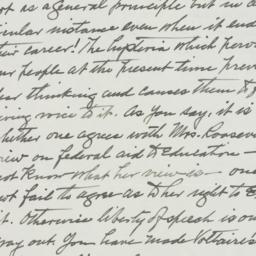 not as a general principle but in a
icular instance even when it end
their career! The hysteria which perv
our people at the present time prev
clear thinking and causes them to
giving voice to it. As you say, it is
whether one agrees with Mrs. Roosev
view on federal aid to education –
not know what her view is – one
not fail to agree as to her right to
it. Otherwise liberty of speech is on
way out. You have made Voltaire's